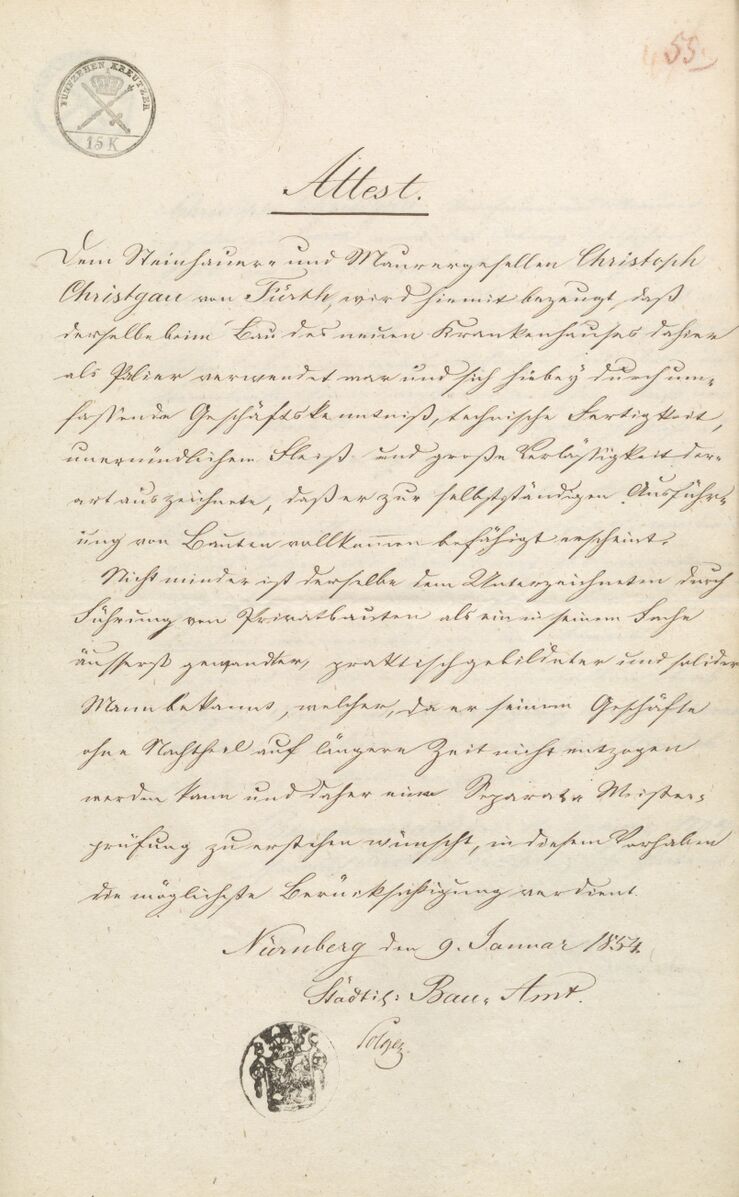 55.
FÜNFZEHEN KREUTZER
15 K
Attest.
Dem Steinhauer- und Maurergesellen Christoph
Christgau von Fürth, wird hiemit bezeugt, daß
derselbe beim Bau des neuen Krankenhauses dahier
als Polier verwendet war und sich hiebey durch um-
fassende Geschäftskenntniß, technische Fertigkeit,
unermüdlichen Fleiß und große Verläßigkeit der-
art auszeichnete, daß er zur selbstständigen Ausführ-
ung von Bauten vollkommen befähigt erscheint.
Nicht minder ist derselbe dem Unterzeichneten durch
Führung von Privatbauten als ein in seinem Fache
äusserst gewandter, praktisch gebildeter und solider
Mann bekannt, welcher, da er seinem Geschäfte
ohne Nachtheil auf längere Zeit nicht entzogen
werden kann und daher eine Separat- Meister-
prüfung zu erstehen wünscht, in diesem Vorhaben
die möglichste Berücksichtigung verdient.
Nürnberg den 9. Januar 1854.
Städtisch: Bau- Amt.
Solger